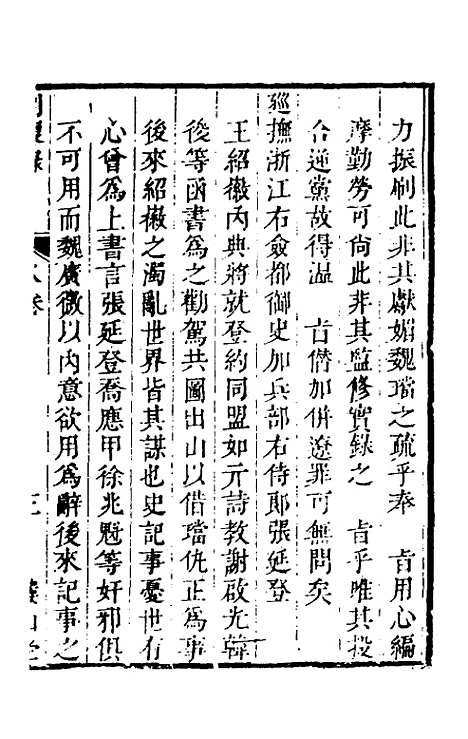 力振刷此非其獻媚魏璫之疏乎奉　旨用心編
摩勤勞可尚此非其監修實錄之　旨乎唯其投
合逆黨故得温　旨僭加併遼罪可無問矣
廵撫浙江右僉都御史加兵部右侍郎張延登
王紹徽內典將就登約同盟如亓詩教謝啟光韓
浚等函書為之勸駕共圖出山以借璫仇正為事
後來紹徽之濁亂世界皆其謀也史記事憂世有
心曾為上書言張延登喬應甲徐兆魁等奸邪俱
不可用而魏廣微以內意欲用為辭後來記事之
錄
八卷
三
山堂